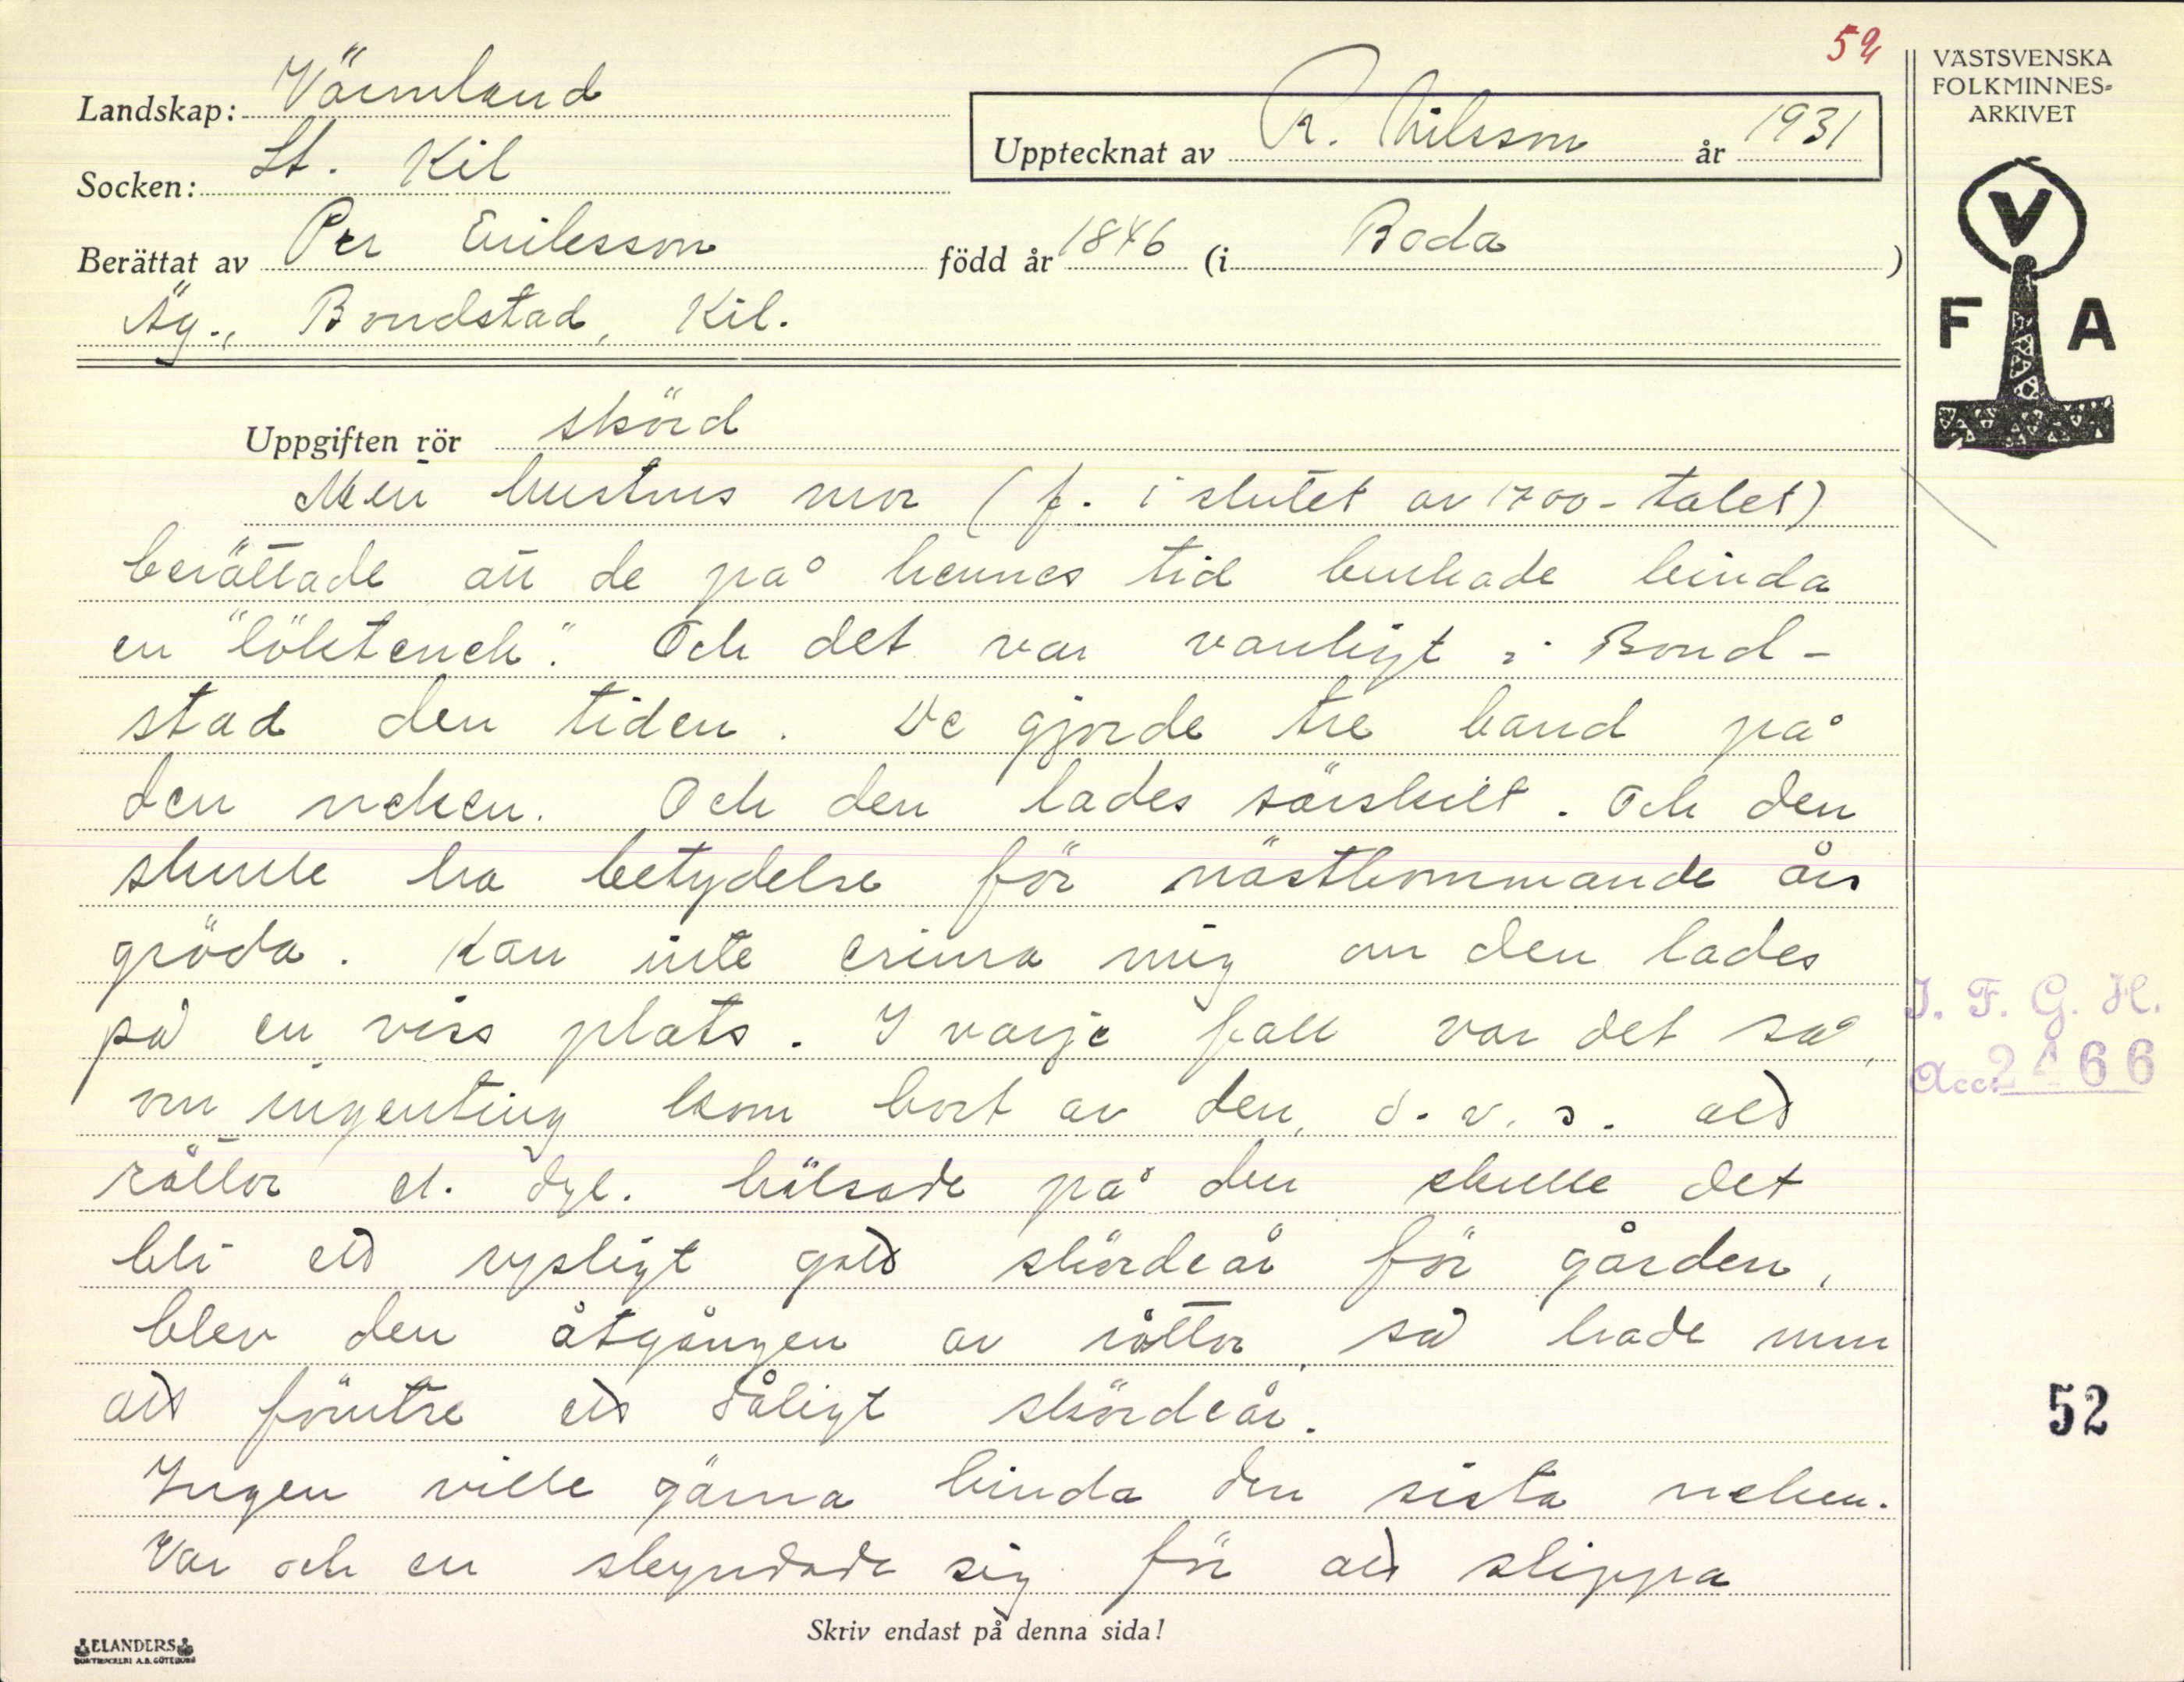 52
VÄSTSVENSKA
FOLKMINNES-
ARKIVET
Landskap: Värmland
Upptecknat av R. Nilsson år 1931
Socken: St. Kil
Berättat av Per Eriksson född år 1846 (i Boda )
Äg., Bondstad, Kil.
V
F A
Uppgiften rör skörd
Min hustrus mor (f. i slutet av 1700-talet)
berättade att de på hennes tid brukade binda
en "löktenek". Och det var vanligt i Bond-
stad den tiden. De gjorde tre band på
den neken. Och den lades särskilt. Och den
skulle ha betydelse för nästkommande års
gröda. Kan inte erinra mig om den lades
på en viss plats. I varje fall var det så,
om ingenting kom bort av den, d.v.s. att
råttor el. dyl. hälsade på den skulle det
bli ett rysligt gott skördeår för gården,
blev den åtgången av råttor, så hade mun
att förutse ett dåligt skördeår.
Ingen ville gärna binda den sista neken.
Var och en skyndade sig för att slippa
I. F. G. H.
Acc: 2466
52
Skriv endast på denna sida!
ELANDERS
BOKTRYCKERI A.B. GÖTEBORG